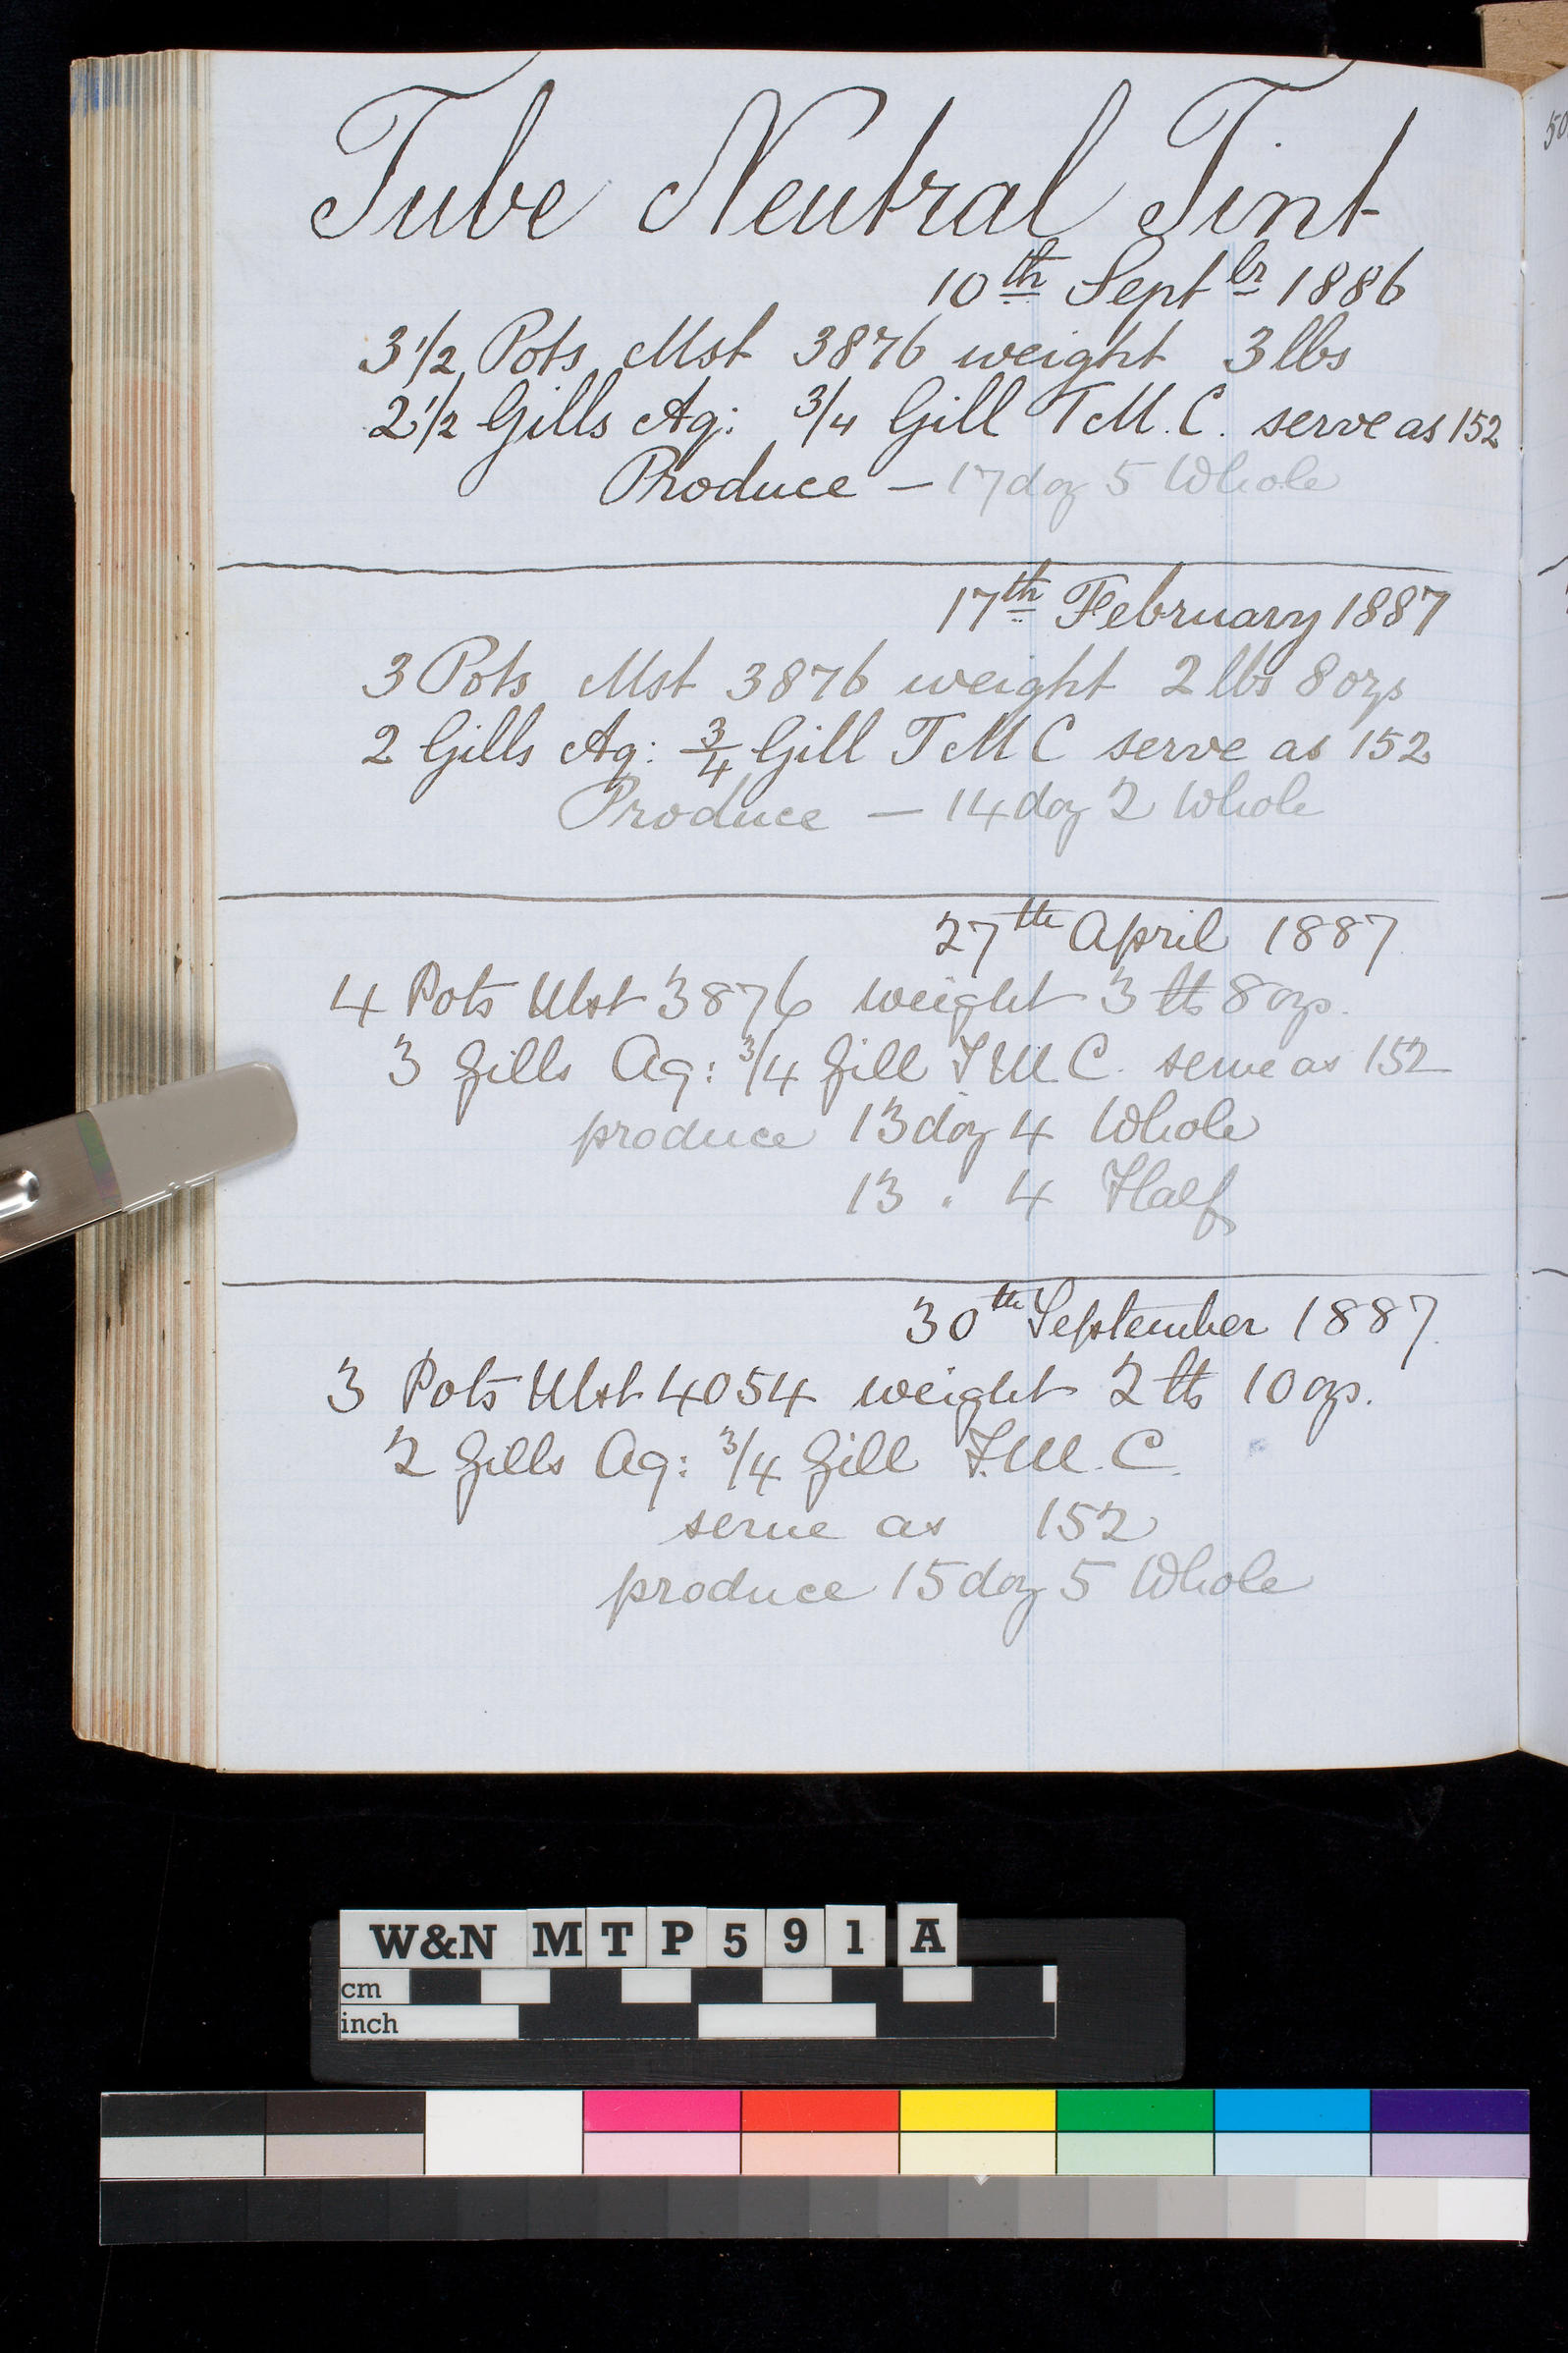 Tube Neutral Tint
10th Septbr 1886
3 1/2 Pots Mst 3876 weight 3 lbs
2 1/2 Gills Aq: 3/4 Gill TM.C. serve as 152
Produce — 17 doz 5 Whole
17th February 1887
3 Pots Mst 3876 weight 2 lbs 8 ozs
2 Gills Aq: 3/4 Gill T M C serve as 152
Produce — 14 doz 2 Whole
27th April 1887
4 Pots Mst 3876 weight 3 lb 8 ozs.
3 Gills Aq: 3/4 Gill T M C. serve as 152
produce 13 doz 4 Whole
13 . 4 Half
30th September 1887.
3 Pots Mst 4054 weight 2 lb 10 ozs.
2 Gills Aq: 3/4 Gill T.M.C.
serve as 152
produce 15 doz 5 Whole
50
W&N MTP591 A
cm
inch